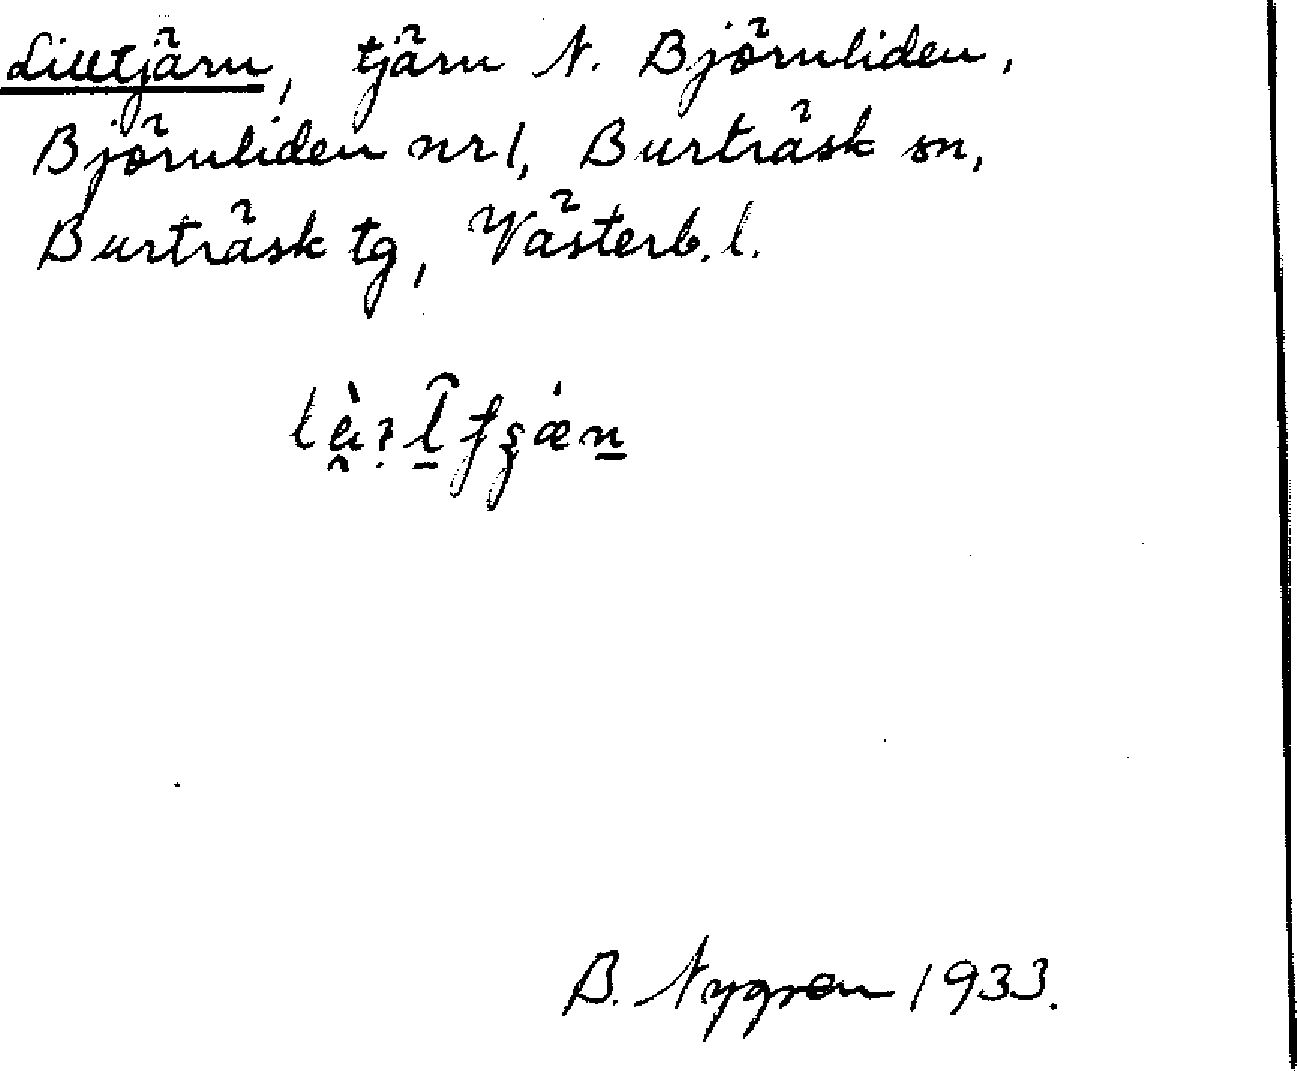 Lilltjärn, tjärn N. Björnliden,
Björnliden nr 1, Burträsk sn,
Burträsk tg, Västerb. l.
B. Nygren 1933.